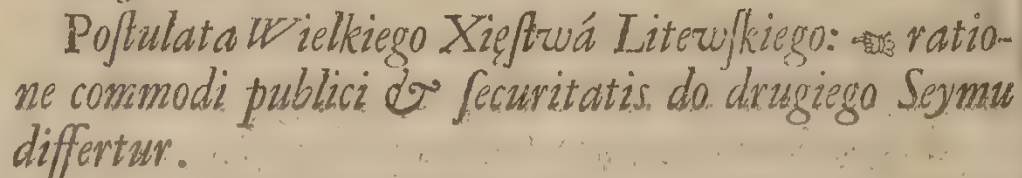 Poſtulata Wielkiego Xięſtwá Litewſkiego: ☜ ratio-
ne commodi publici & ſecuritatis do drugiego Seymu
differtur.